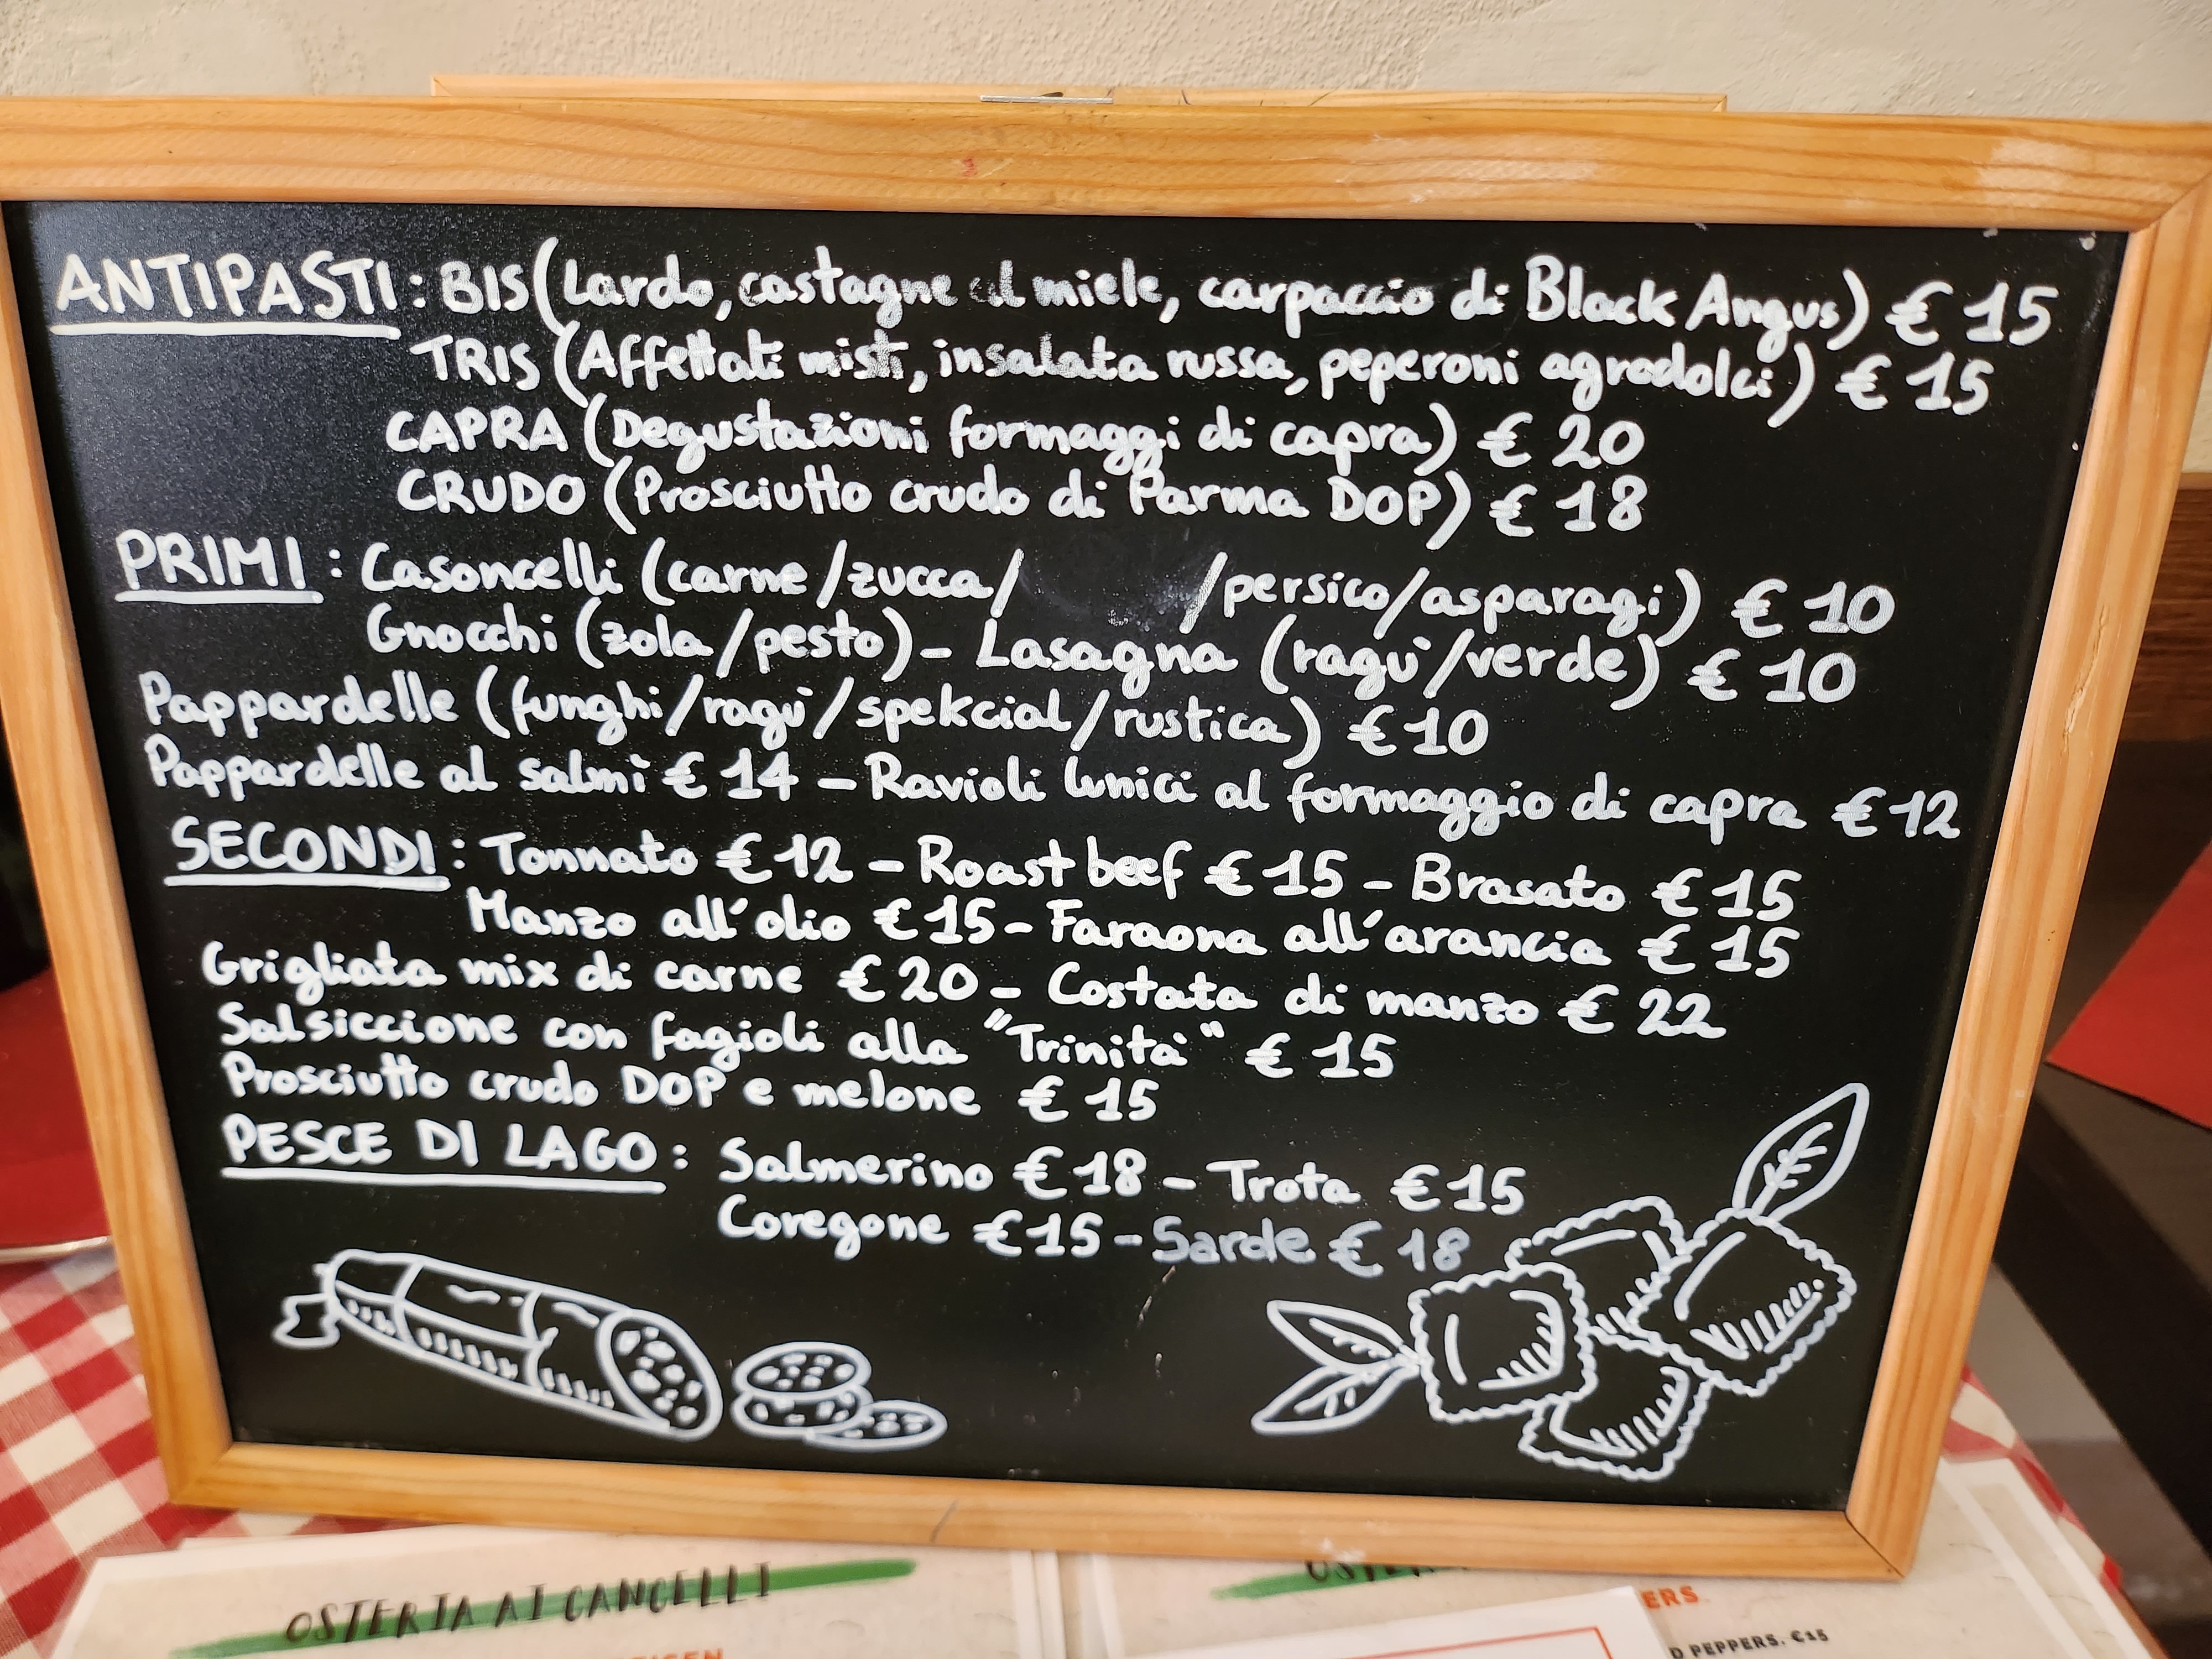 ANTIPASTI: BIS (Lardo, castagne al miele, carpaccio di Black Angus) € 15
TRIS (Affettati misti, insalata russa, peperoni agrodolci) € 15
CAPRA (Degustazioni formaggi di capra) € 20
CRUDO (Prosciutto crudo di Parma DOP) € 18
PRIMI: Casoncelli (carne/zucca/ /persico/asparagi) € 10
Gnocchi (zola/pesto) - Lasagna (ragù/verde) € 10
Pappardelle (funghi/ragù/spekcial/rustica) € 10
Pappardelle al salmì € 14 - Ravioli lunici al formaggio di capra € 12
SECONDI: Tonnato € 12 - Roast beef € 15 - Brasato € 15
Manzo all'olio € 15 - Faraona all'arancia € 15
Grigliata mix di carne € 20 - Costata di manzo € 22
Salsiccione con fagioli alla "Trinità" € 15
Prosciutto crudo DOP e melone € 15
PESCE DI LAGO: Salmerino € 18 - Trota € 15
Coregone € 15 - Sarde € 18
OSTERIA AI CANCELLI
D PEPPERS. €15